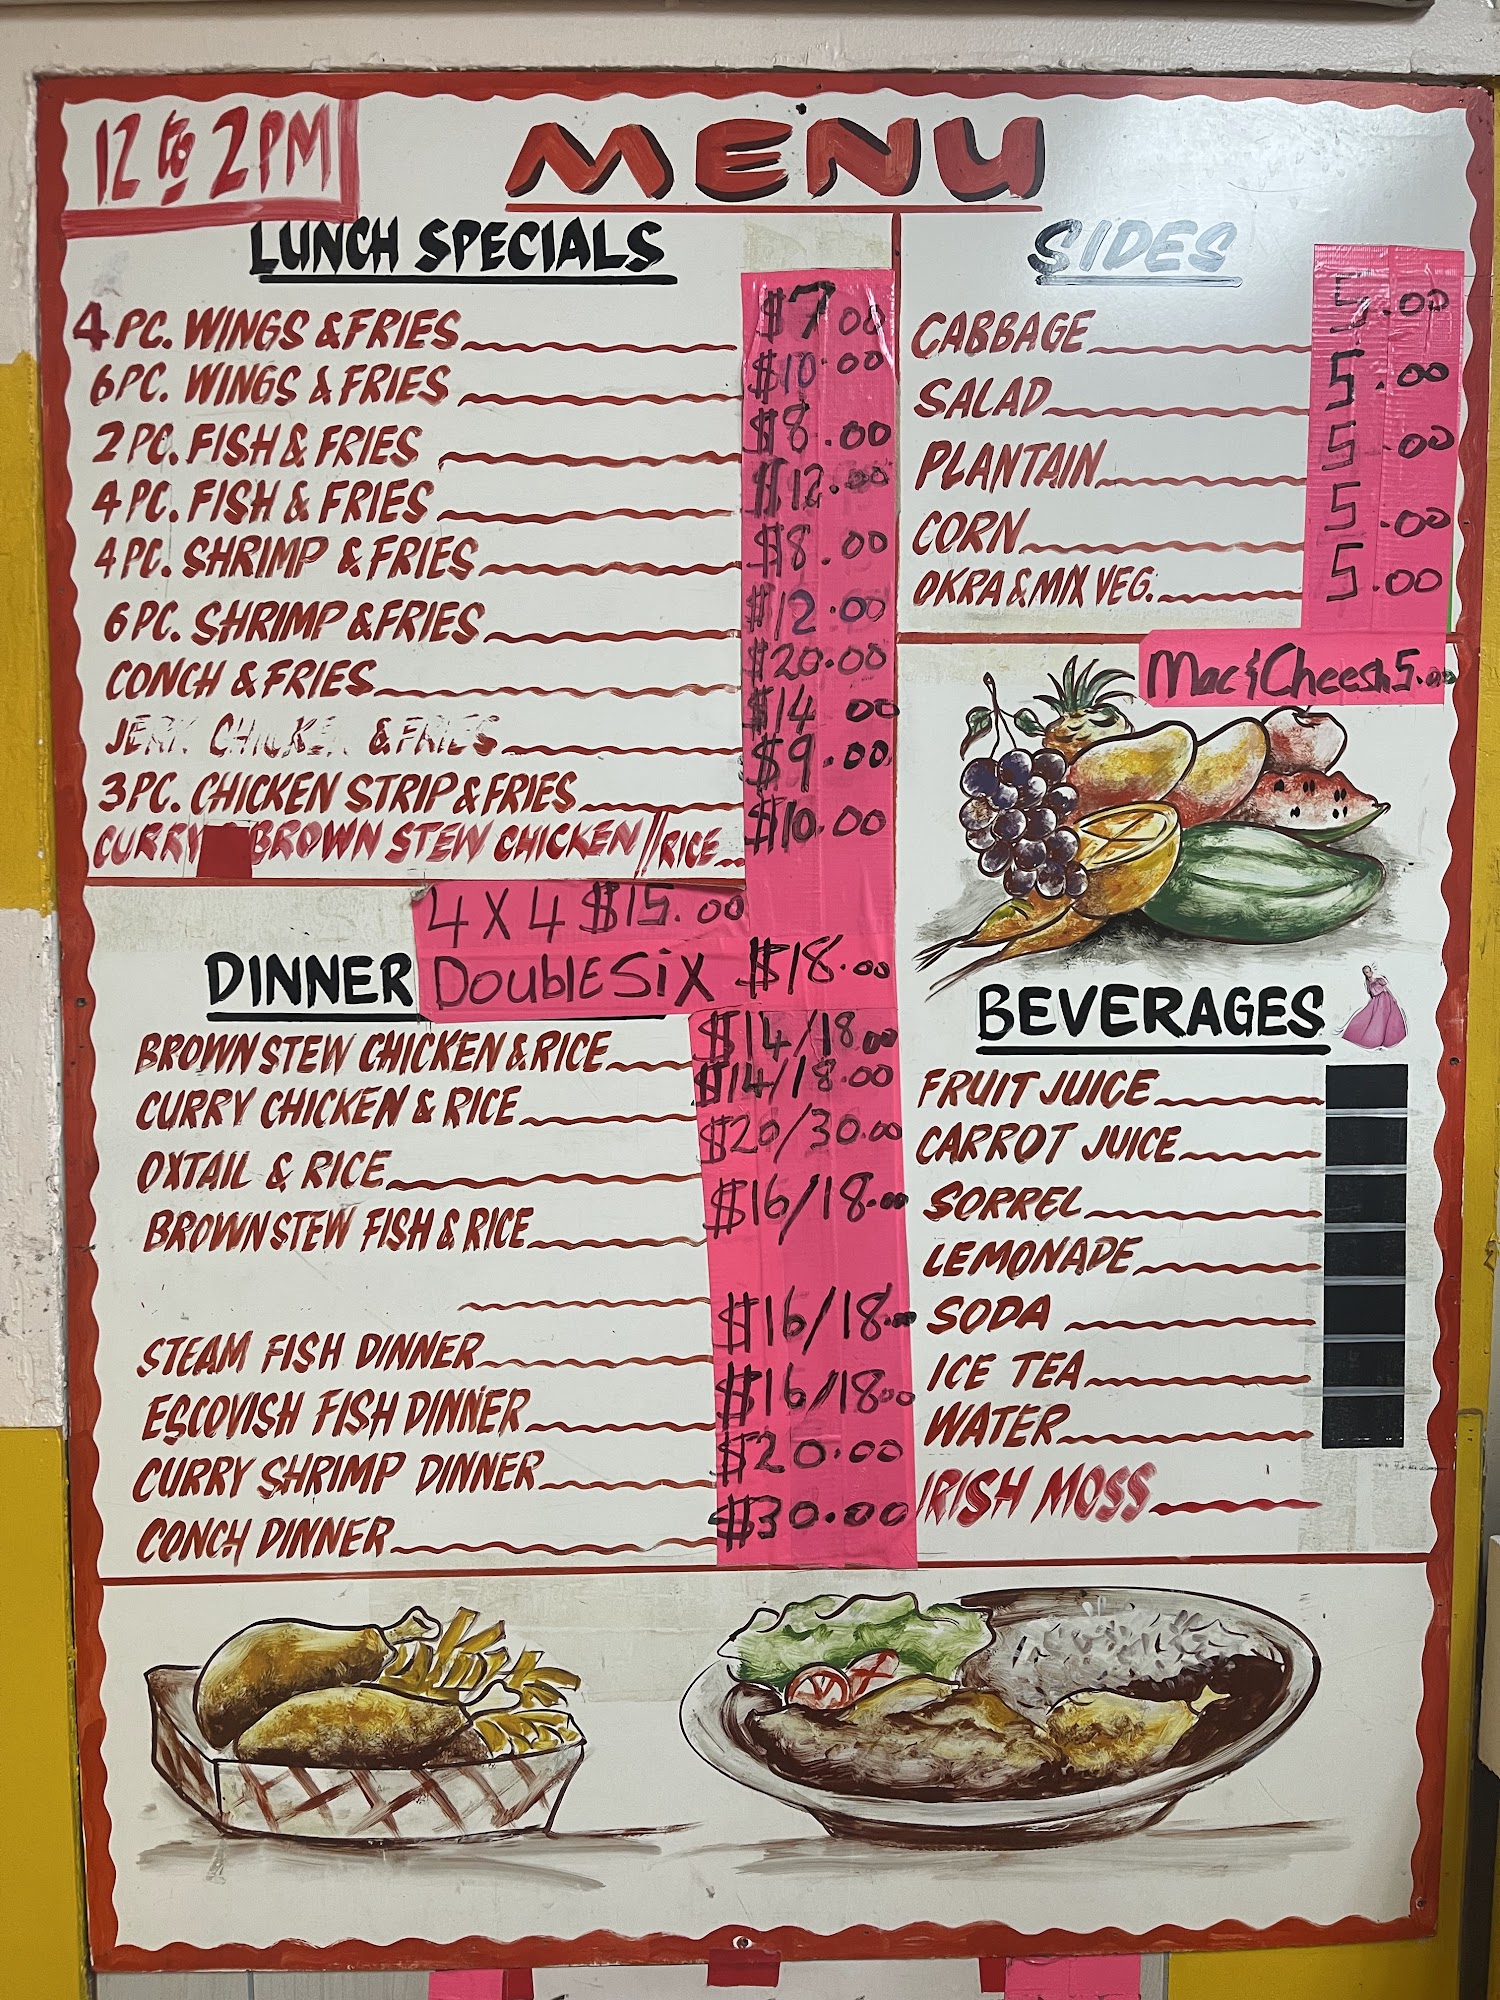 12 to 2PM
MENU
LUNCH SPECIALS
4 PC. WINGS & FRIES $7.00
6PC. WINGS & FRIES $10.00
2 PC. FISH & FRIES $8.00
4 PC. FISH & FRIES $12.00
4 PC. SHRIMP & FRIES $8.00
6 PC. SHRIMP & FRIES $12.00
CONCH & FRIES $20.00
JERK CHICKEN & FRIES $14.00
3 PC. CHICKEN STRIP & FRIES $9.00
CURRY BROWN STEW CHICKEN // RICE $10.00
4 X 4 $15.00
DoublE SiX $18.00
DINNER
BROWN STEW CHICKEN & RICE $14/18.00
CURRY CHICKEN & RICE $14/18.00
OXTAIL & RICE $20/30.00
BROWN STEW FISH & RICE $16/18.00
STEAM FISH DINNER $16/18.00
ESCOVISH FISH DINNER $16/18.00
CURRY SHRIMP DINNER $20.00
CONCH DINNER $30.00
SIDES
CABBAGE 5.00
SALAD 5.00
PLANTAIN 5.00
CORN 5.00
OKRA & MIX VEG. 5.00
Mac & Cheesh 5.00
BEVERAGES
FRUIT JUICE
CARROT JUICE
SORREL
LEMONADE
SODA
ICE TEA
WATER
IRISH MOSS